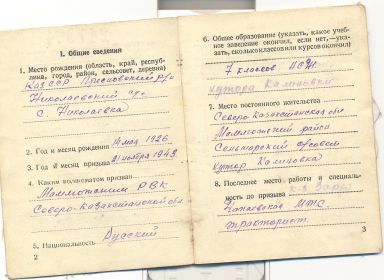 I. Общие сведения
1. Место рождения (область, край, респуб-
лика, город, район, сельсовет, деревня)
Каз ССР Пресновский р/он
Николаевский с/с
с. Николаевка
2. Год и месяц рождения 14 мая 1926.
3. Год и месяц призыва 21 ноября 1943
4. Каким военкоматом призван
Мамлютским РВК
Северо-Казахстанской обл
5. Национальность Русский
2
6. Общее образование (указать, какое учеб-
ное заведение окончил, если нет,—указать,
сколько классов или курсов окончил)
7 классов НСШ
хутора Калиновка
7. Место постоянного жительства
Северо Казахстанская обл
Мамлютский район
с/совет
хутор Калиновка
8. Последнее место работы и специаль-
ность до призыва
МТС.
тракторист.
3